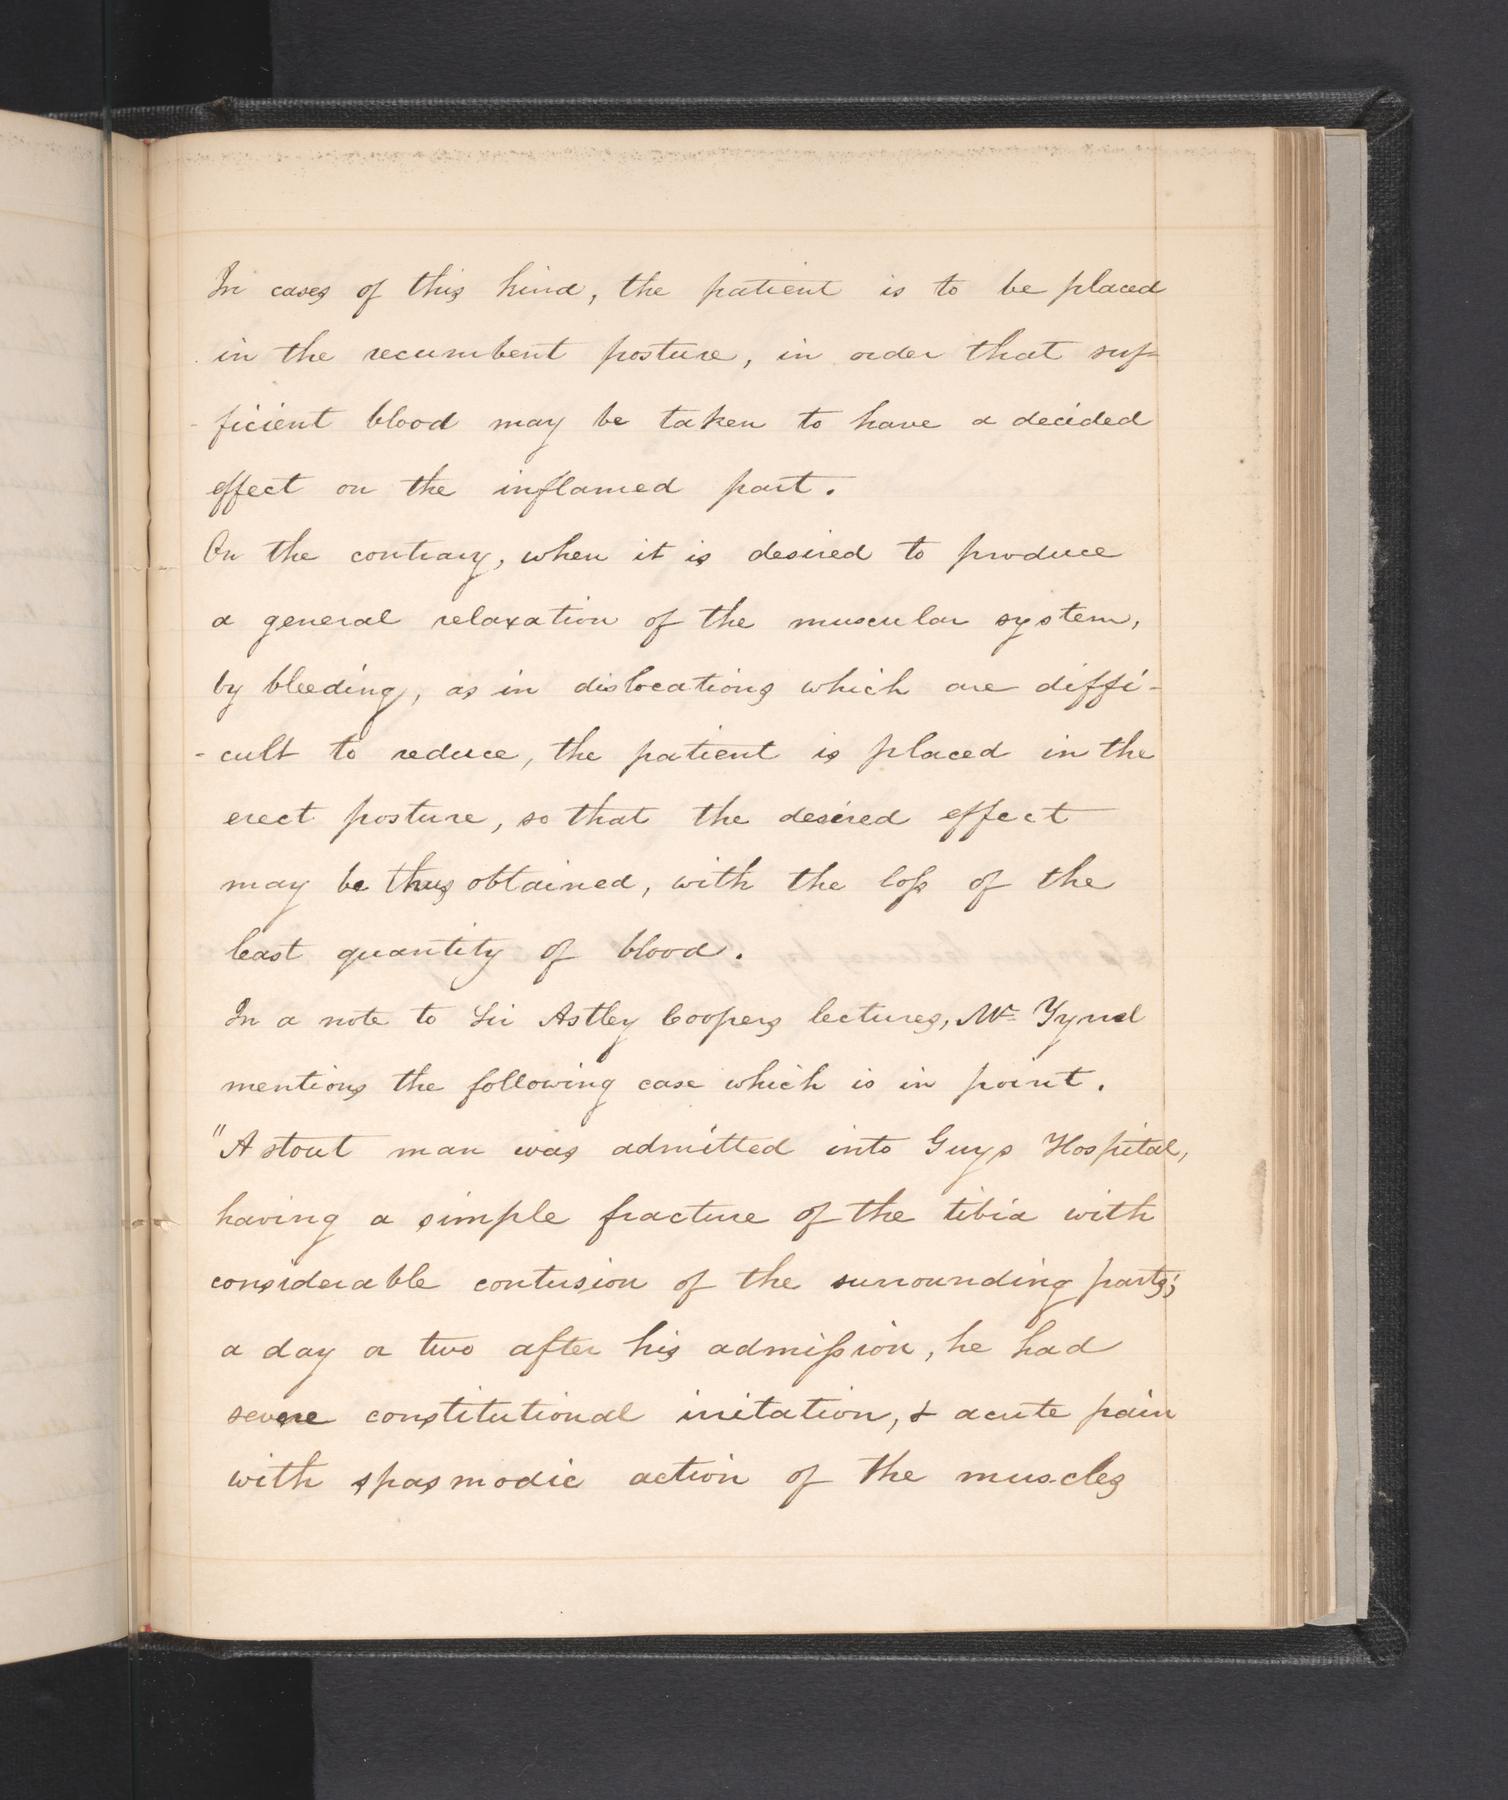 In cases of this kind, the patient is to be placed
in the recumbent posture, in order that suf-
-ficient blood may be taken to have a decided
effect on the inflamed part.
On the contrary, when it is desired to produce
a general relaxation of the muscular system,
by bleeding, as in dislocations which are diffi-
-cult to reduce, the patient is placed in the
erect posture, so that the desired effect
may be thus obtained, with the loss of the
least quantity of blood.
In a note to Sir Astley Coopers lectures, Mr.
mentions the following case which is in point.
"A stout man was admitted into Guys Hospital,
having a simple fracture of the tibia with
considerable contusion of the surrounding parts;
a day or two after his admission, he had
severe constitutional irritation, & acute pain
with spasmodic action of the muscles